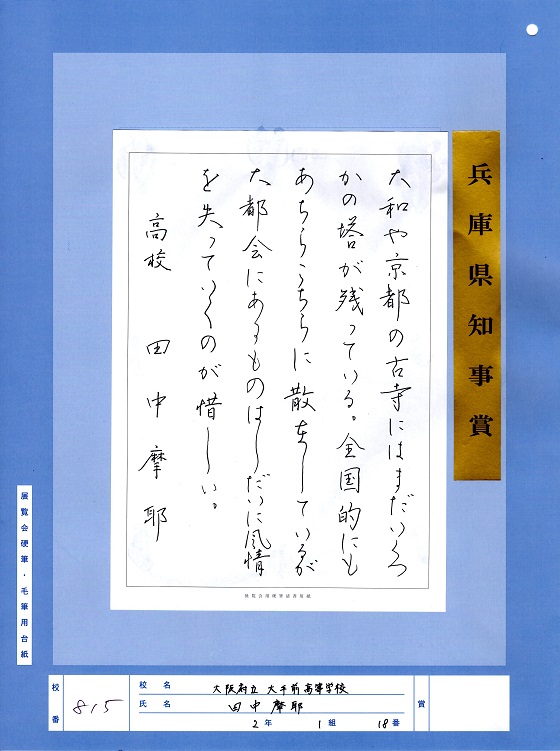 兵庫県知事賞
大和や京都の古寺にはまだいくつ
かの塔が残っている。全国的にも
あちらこちらに散在しているが
大都会にあるものはしだいに風情
を失っていくのが惜しい。
高校 田中摩耶
展覧会硬筆・毛筆用台紙
展覧会用硬筆清書用紙
校番 815
校名 大阪府立大手前高等学校
氏名 田中摩耶
2年 1組 18番
賞